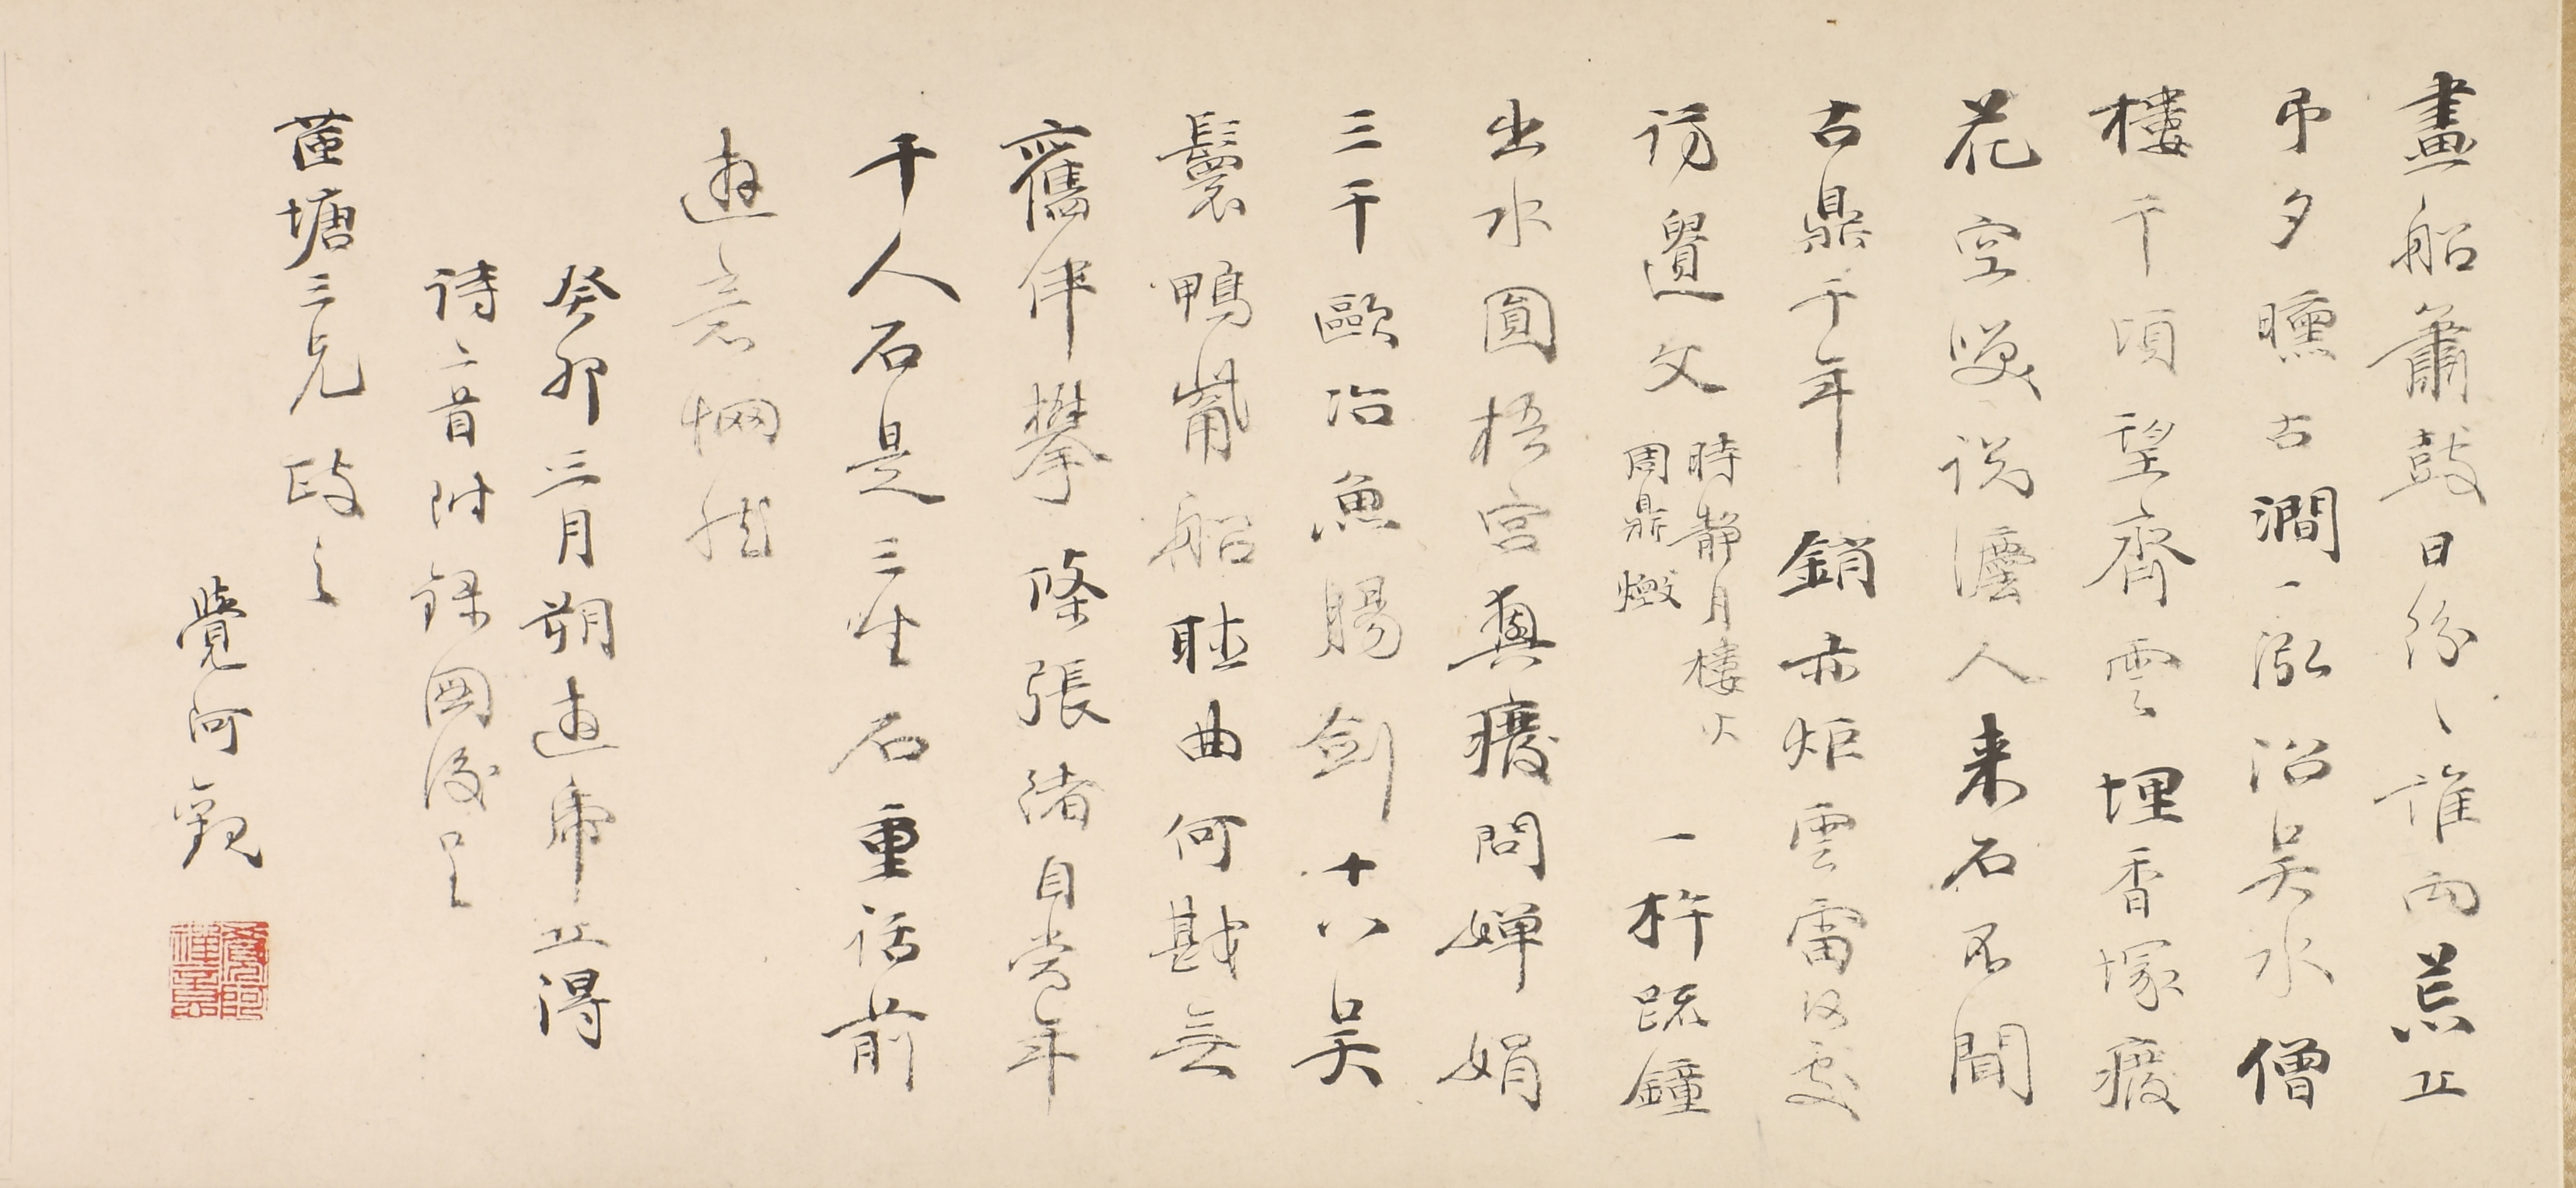 畫船簫鼓日紛〻誰向荒丘
弔夕曛古澗一泓沼吳水僧
樓千頃望齊雲埋香塚瘞
花空笑說法人来石不聞
古鼎千年銷赤炬雲雷何處
訪遺文時静月樓火周鼎燬一杵疏鐘
出水圓梧宮輿瘞問嬋娟
三千歐冶魚腸剑十八吳
鬟鴨觜船聴曲何戡無
舊伴攀條張緒自當年
千人石是三生石重話前
遊意惘然
癸卯三月朔遊虎丘得
詩二首附錄圖後呈
苗塘三兄政之
覺阿觀